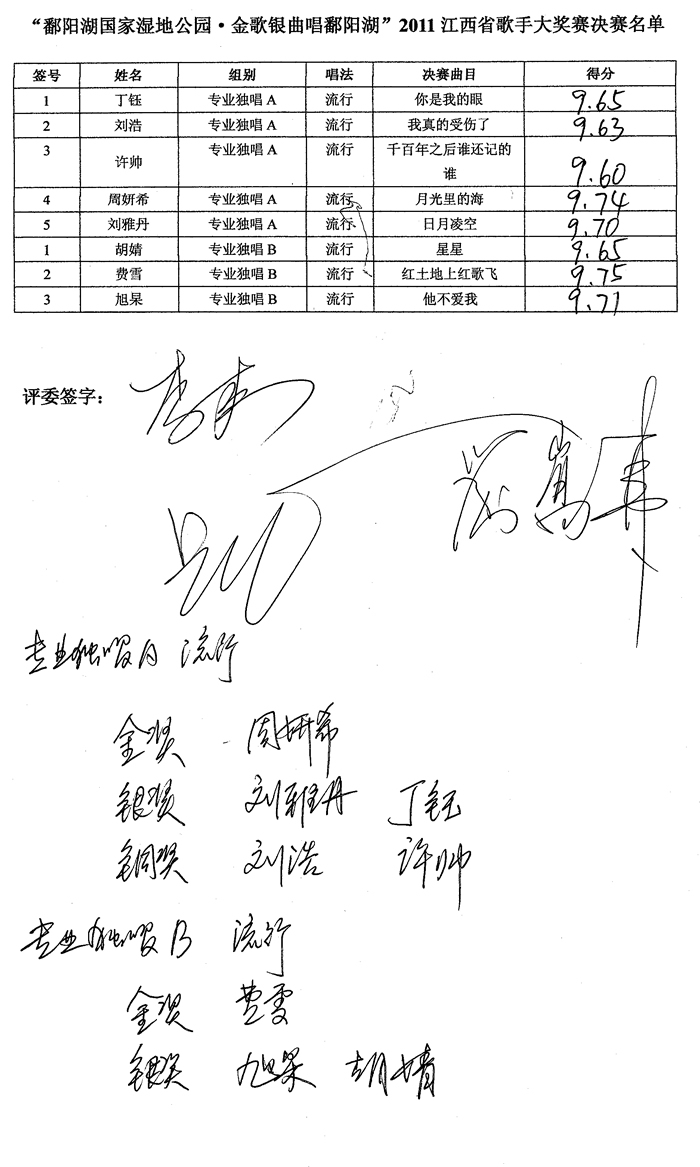 “鄱阳湖国家湿地公园·金歌银曲唱鄱阳湖”2011江西省歌手大奖赛决赛名单
签号 姓名 组别 唱法 决赛曲目 得分
1 丁钰 专业独唱A 流行 你是我的眼 9.65
2 刘浩 专业独唱A 流行 我真的受伤了 9.63
3 许帅 专业独唱A 流行 千百年之后谁还记的
谁 9.60
4 周妍希 专业独唱A 流行 月光里的海 9.74
5 刘雅丹 专业独唱A 流行 日月凌空 9.70
1 胡婧 专业独唱B 流行 星星 9.65
2 费雪 专业独唱B 流行 红土地上红歌飞 9.75
3 旭杲 专业独唱B 流行 他不爱我 9.71
评委签字：
专业独唱A 流行
金奖 周妍希
银奖 刘雅丹 丁钰
铜奖 刘浩 许帅
专业独唱B 流行
金奖 费雪
银奖 旭杲 胡婧